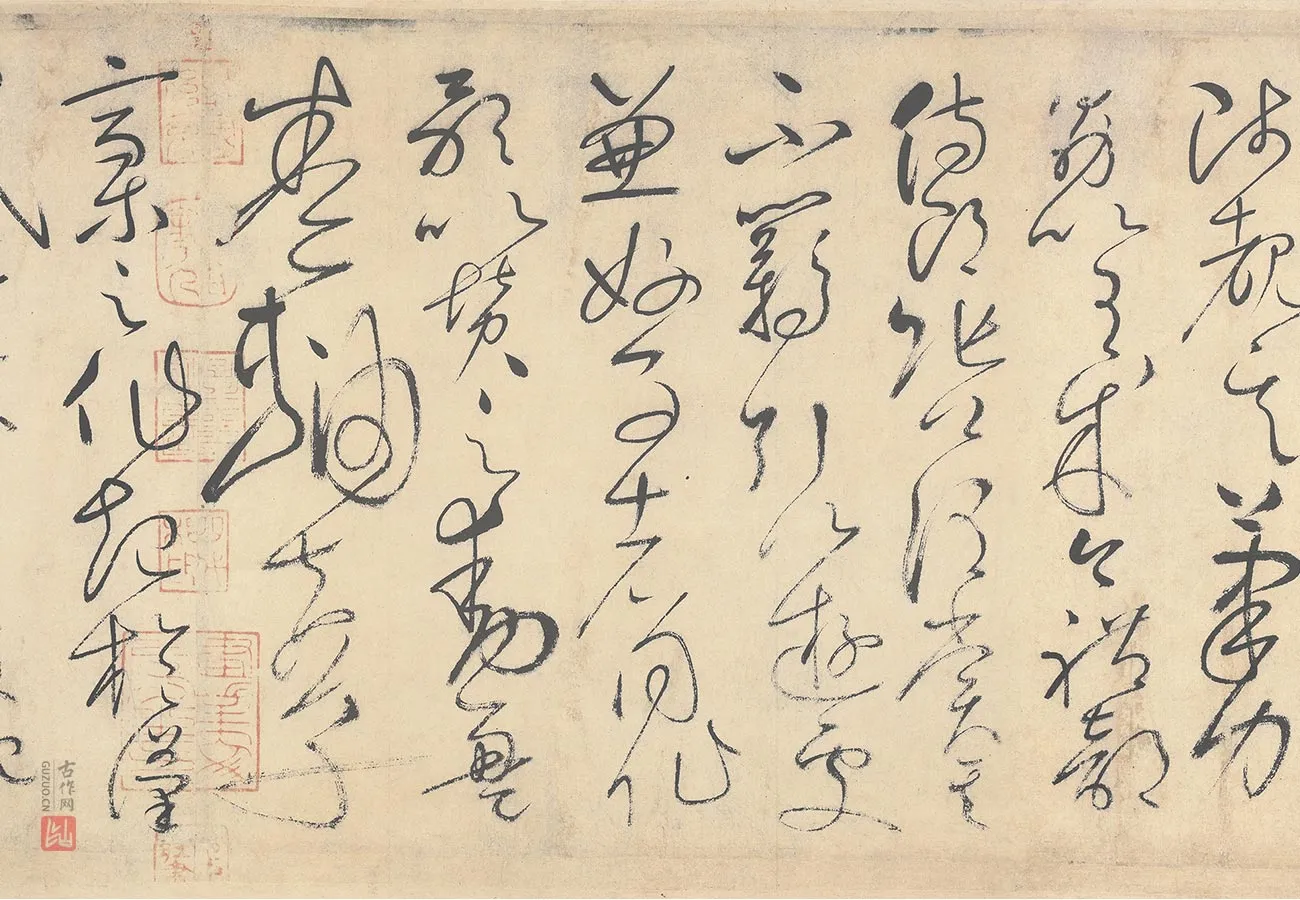 陟覩其筆力
勗以有成今禮部
侍郎張公謂賞其
不羈引以遊處
兼好事者同作
歌以贊之動盈
卷軸夫草
稾之作起於漢
古作网
GUZUO.CN